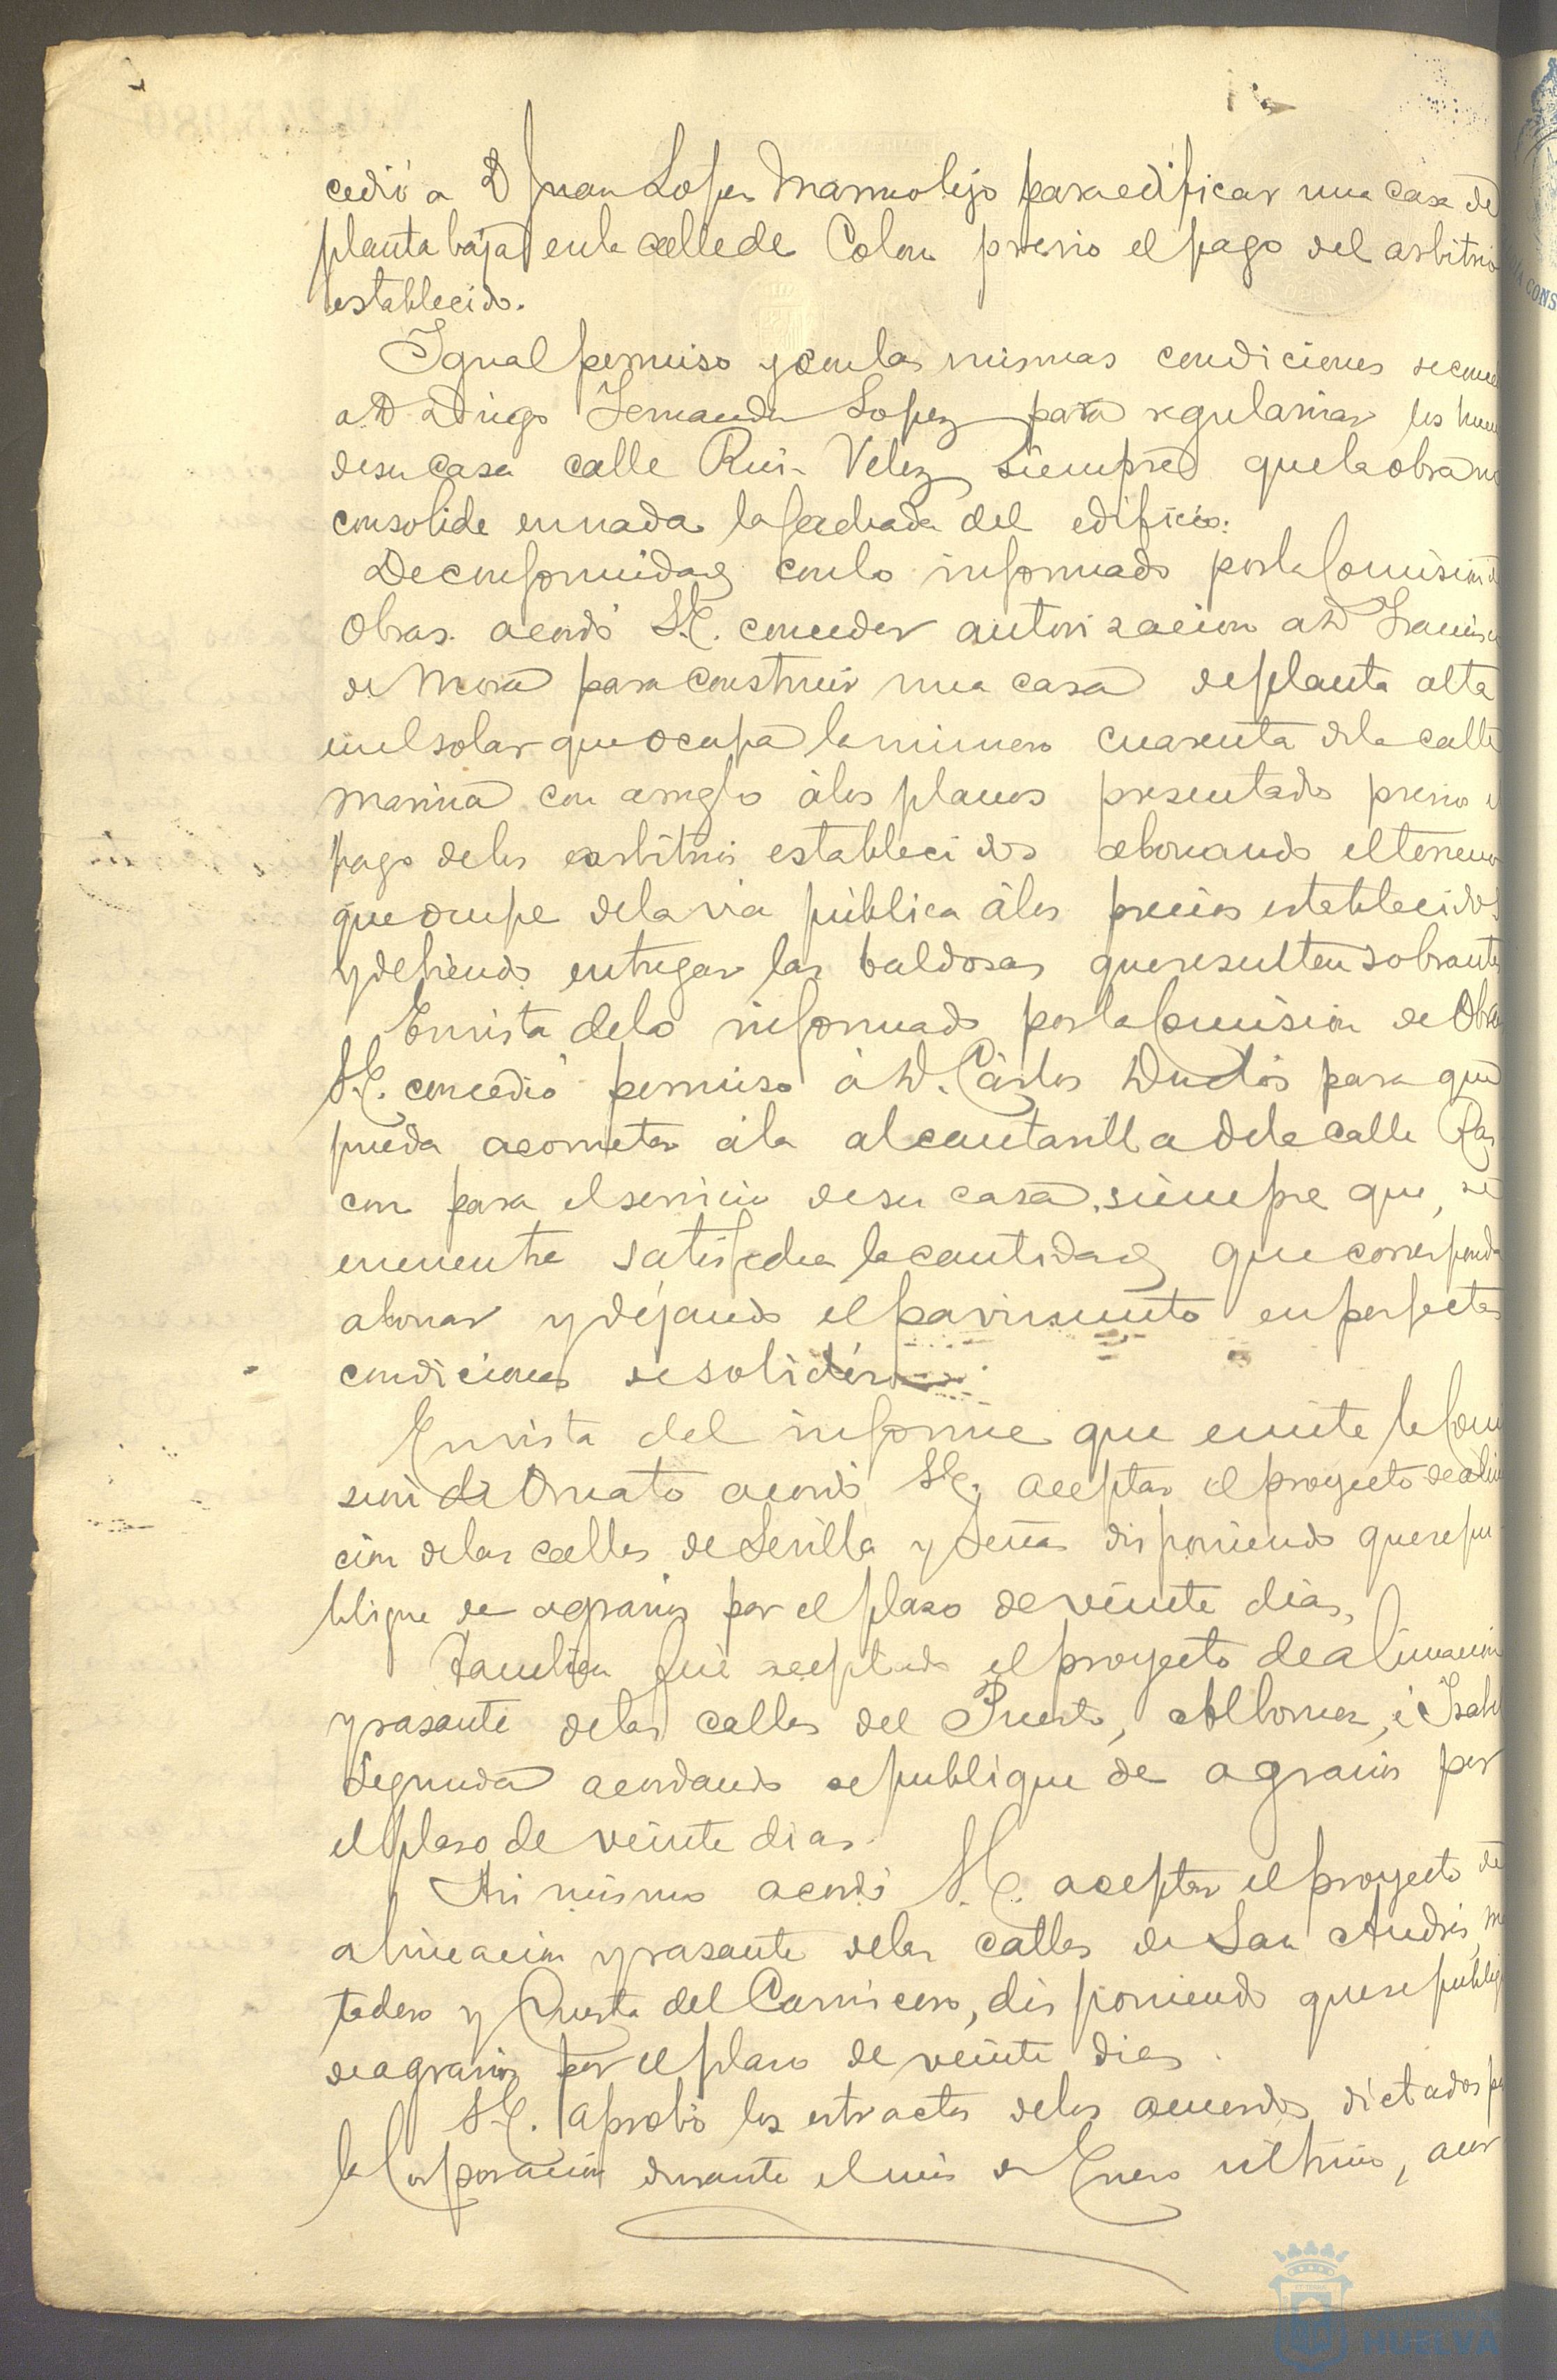 cedió a D Juan Lopez Marmolejo para edificar una casa de
planta baja en la calle de Colon previo el pago del arbitrio
establecido.
Igual permiso y con las mismas condiciones se conce
a D Diego Fernandez Lopez para regularizar los huecos
de su casa calle Rui- Velez siempre que la obra no
consolide en nada la fachada del edificio.
De conformidad con lo informado por la Comision de
Obras. acordó S.E. conceder autorizacion a D Francisco
de Mora para construir una casa de planta alta
en el solar que ocupa la número cuarenta de la calle
Marina con arreglo á los planos presentados previo el
pago de los arbitrios establecidos abonando el terreno
que ocupe de la via pública á los precios establecidos
y debiendo entregar las baldosas que resulten sobrantes
En vista de lo informado por la Comision de Obras
S.E. concedió permiso á D. Cárlos Duclós para que
pueda acometer á la alcantarilla de la calle Ras
con para el servicio de su casa, siempre que, se
encuentre satisfecha la cantidad que corresponda
abonar y dejando el pavimento en perfectas
condiciones de solidéz
En vista del informe que emite la Comi
sion de Ornato acordó S.E. aceptar el proyecto de alinea
cion de las calles de Sevilla y Seña disponiendo que se pu-
blique de agravios por el plazo de veinte dias,
Tambien fué aceptado el proyecto de alineacion
y rasante de las calles del Puerto, Albornoz, é Isabel
Segunda acordando se publique de agravios por
el plazo de veinte dias.
Asi mismo acordó S.E. aceptar el proyecto de
alineacion y rasante de las calles de San Andrés, Ma
tadero y Cuesta del Carnicero, disponiendo que se publiq
de agravios por el plazo de veinte dias.
S.E. aprobó los estractos de los acuerdos dictados por
la Corporacion durante el mes de Enero último, acor
CONS
HUELVA